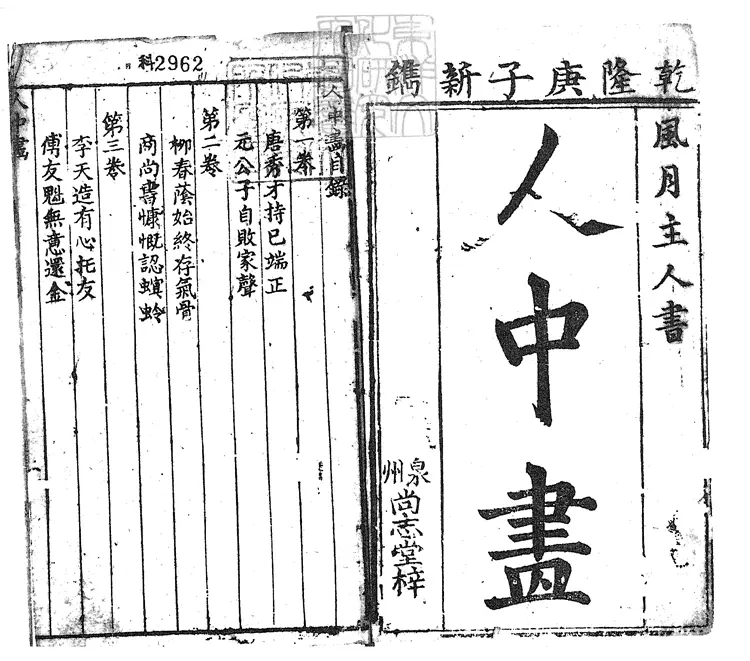 乾隆庚子新鐫
風月主人書
人中畫
泉州尚志堂梓
人中畫目錄
第一卷
唐秀才持己端正
元公子自敗家聲
第二卷
柳春蔭始終存氣骨
商尚書慷慨認螟蛉
第三卷
李天造有心托友
傅友魁無意還金
人中畫
科2962